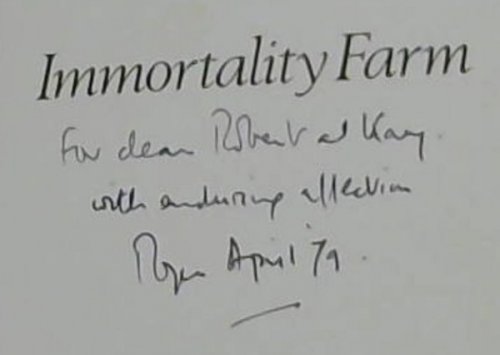 Immortality Farm
For dear Robert and Kay
with enduring affection
Roger April 79